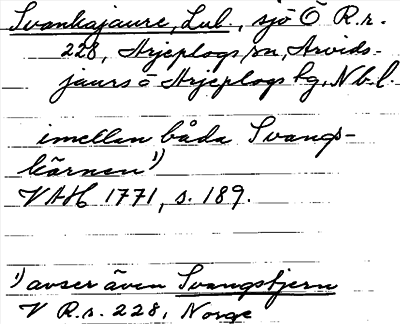 Svankajaure, Lul., sjö Ö R.r.
228, Arjeplogs sn, Arvids-
jaurs o Arjeplogs lg, Nb.l.
imellan båda Svangs-
kärnen¹)
VAH 1771, s. 189.
¹) avser även Svangstjern
V R.r. 228, Norge